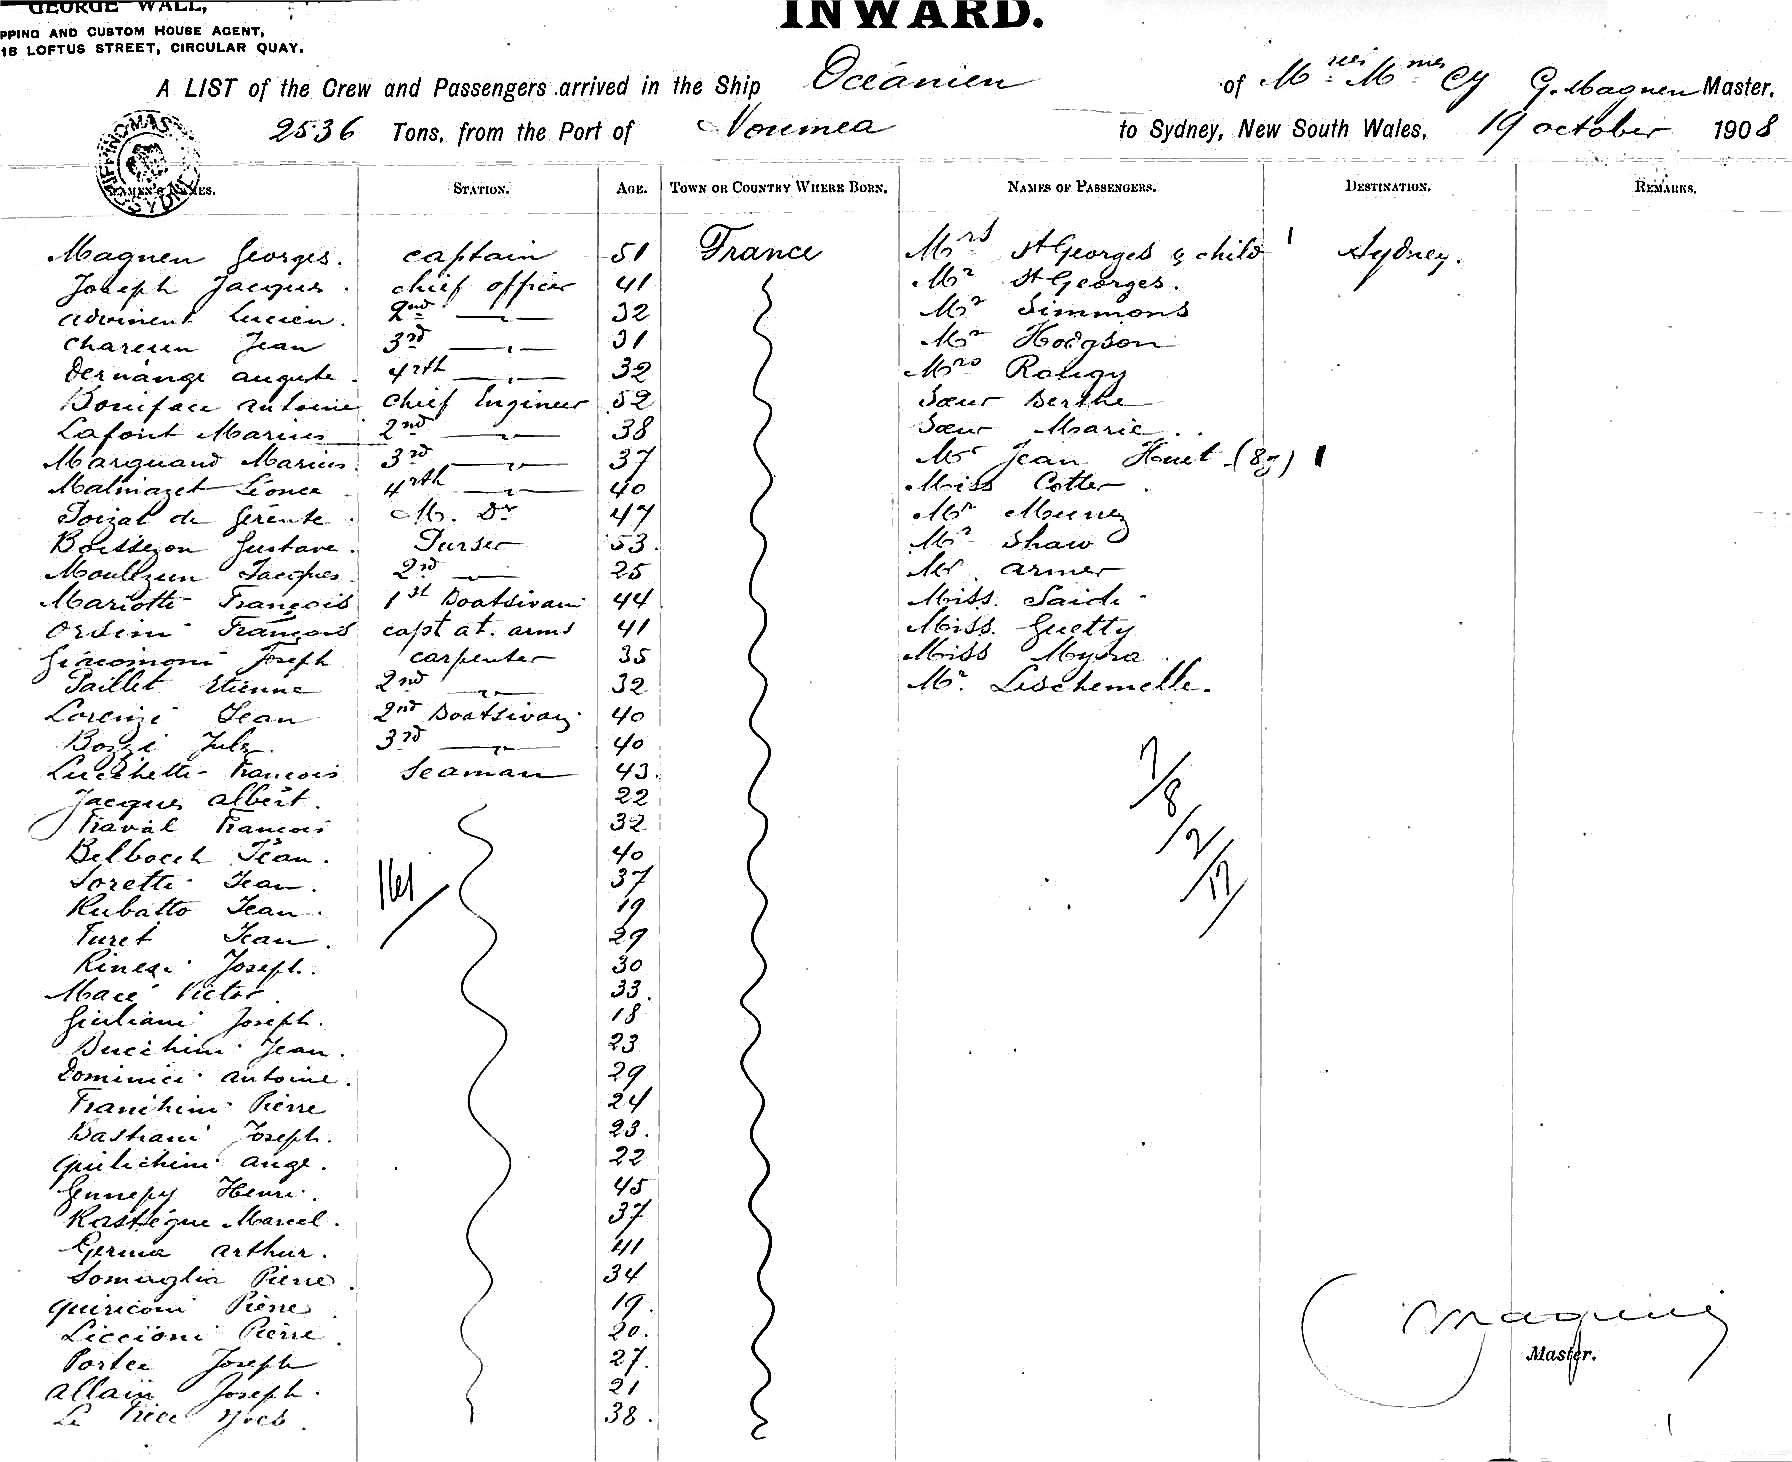 GEORGE WALL,
PPING AND CUSTOM HOUSE AGENT,
18 LOFTUS STREET, CIRCULAR QUAY.
INWARD.
A LIST of the Crew and Passengers arrived in the Ship Océanien of Mries Mmes Cy G. Magnen Master,
2536 Tons, from the Port of Noumea to Sydney, New South Wales, 19 october 1908
SEAMEN'S NAMES. STATION. AGE. TOWN OR COUNTRY WHERE BORN. NAMES OF PASSENGERS. DESTINATION. REMARKS.
Magnen Georges. captain 51 France Mrs St Georges & child 1 Sydney.
Joseph Jacques. chief officer 41 Mr St Georges.
Lucien. 2nd —〃— 32 Mr Simmons
Jean 3rd —〃— 31 Mr Hodgson
auguste. 4rth —〃— 32 Mrs Rougy
Boniface antoine chief Engineer 52 Sœur Berthe
Lafont Marius 2nd —〃— 38 Sœur Marie
Marquand Marius. 3rd —〃— 37 Mr Jean Huet 1
Malmazet Léonce 4rth —〃— 40 Miss Cotter
de Gérente. M. Dr 47 Mr
Boissezon Gustave. Purser 53. Mr Shaw
Jacques. 2nd — 25 Mr armer
Mariotti François 1st Boatswain 44 Miss.
Orsini François capt at. arms 41 Miss. Guetty
Giacomoni Joseph carpenter 35 Miss Myra
Paillet Etienne 2nd —〃— 32 Mr. Lischemelle.
Lorenzi Jean 2nd Boatswain 40
Bozzi Jules. 3rd —〃— 40
Lucchetti François Seaman 43.
Jacques albert. 22
François 32
Jean. 40
Loretti Jean. 37
161
Rubatto Jean. 19
Furet Jean. 29
Joseph. 30
Macé Victor. 33.
Giuliani Joseph. 18
Bucchini Jean. 23
Dominici antoine. 29
Franchini Pierre 24
Bastiani Joseph. 23.
Quilichini ange. 22
Henri. 45
Rastègue Marcel. 37
Germa arthur. 41
Somaglia Pierre. 34
Quiriconi Pierre 19.
Liccioni Pierre 20.
Joseph 27.
allain Joseph. 21
Le Yves. 38.
7/8/2/17
Magnen
Master.